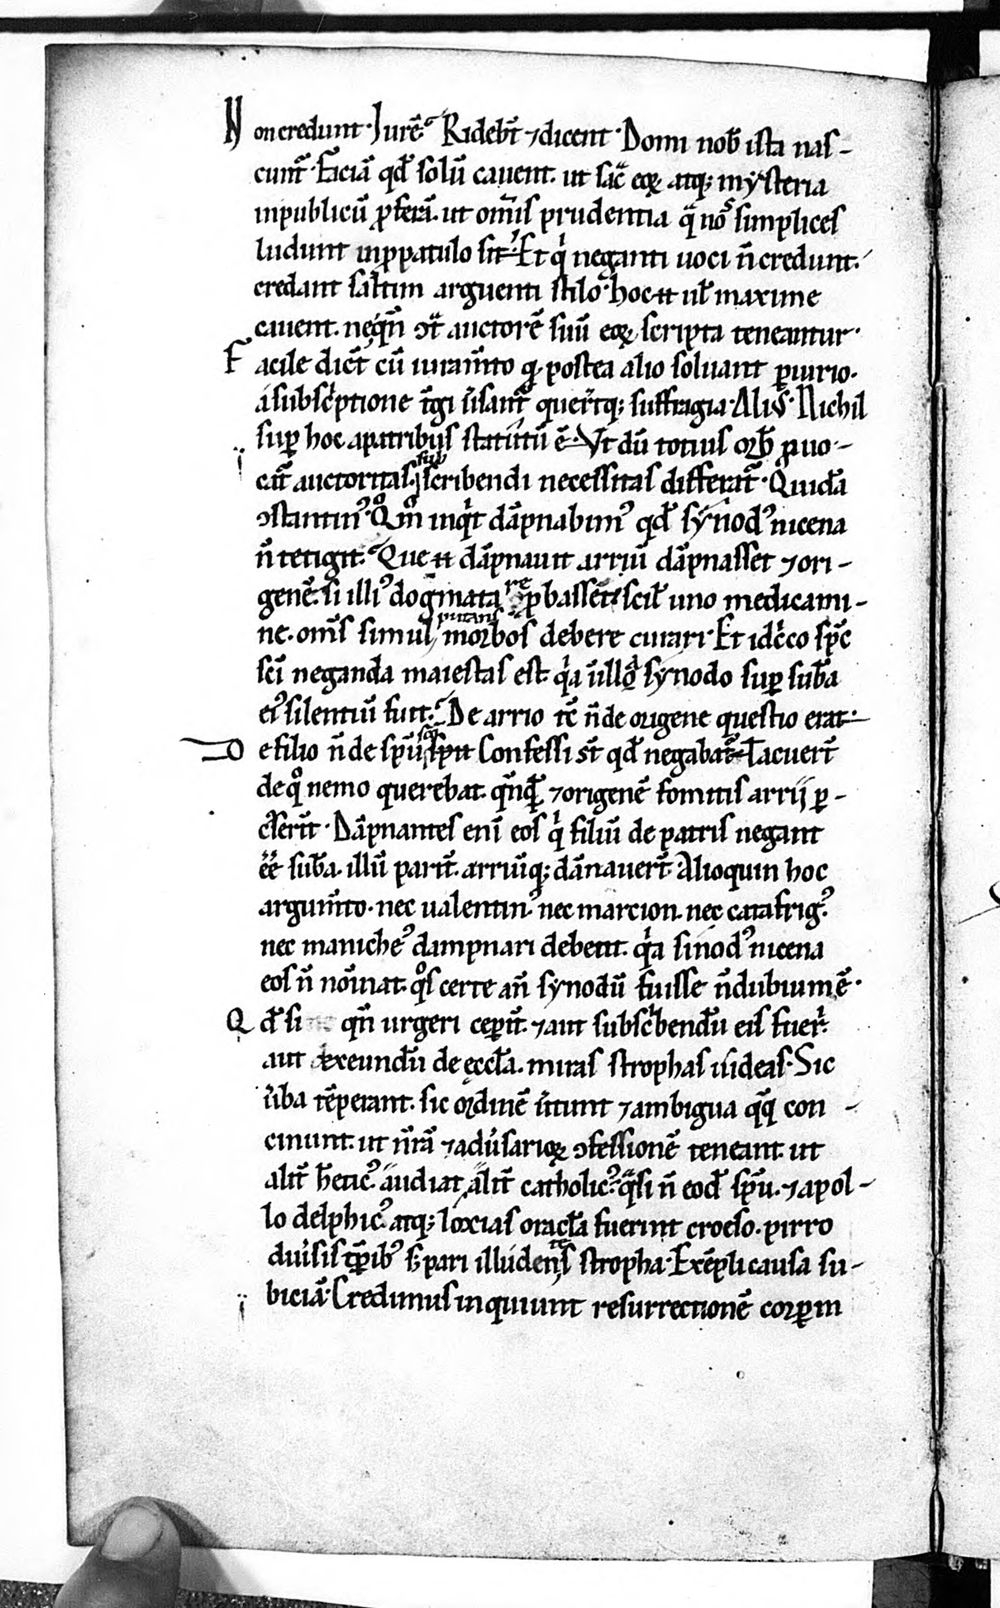 Non credunt. Jurem̃. Ridebt̃ ⁊ dicent. Domi nob̃ ista nas-
cunt̃. Faciã qđ solũ cavent. ut sac̃ eoꝝ atq; mysteria
inpublicũ ꝓferã. ut om̃is prudentia q̃ nos simplices
ludunt inpropatulo sit. Et qͥ neganti uoci ñ credunt.
credant saltim arguenti stilo. hoc ut̃ maxime
cauent. neqñ ꝯͣ auctorẽ suũ eoꝝ scripta teneantur.
Facile dict̃ cũ iuram̃to qͩ postea alio soluant ꝑiurio.
a subscͥptione t̃gĩ ũsant̃ quer̃tq; suffragia. Aliꝰ. Nichil
suꝑ hoc apatribus statutũ ẽ. Ut dũ totius orb̃ ꝓuo-
cat̃ auctoritas. sub scribendi necessitas differat̃. Quidã
ꝯstantinꝰ. Qͦm̃ inqͥt dãpnabimꝰ qđ synodꝰ nicena
ñ tetigit. Que dãpnauit arriũ dãpnasset ⁊ ori-
genẽ. si illiꝰ dogmata re ꝓbasset. scil̃ uno medicami-
ne. om̃s simul putans morbos debere curari. Et idc̃co sp̃c
sc̃i neganda maiestas est. qͥa ũ illo synodo suꝑ sub̃a
eiꝰ silentiũ fuit. De arrio tc̃ ñ de origene questio erat.
De filio ñ de sp̃u sc̃o Confessi st̃ qđ negabat̃. Tacuert̃
de qͦ nemo querebat. qñqͣ ⁊ origenẽ fomitis arrij ꝑ-
c̃serit̃. Dãpnantes enĩ eos qͥ filiũ de patris negant
ẽẽ sub̃a. illũ parit̃. arriũq; dãnauert̃. Alioquin hoc
argum̃to. nec ualentinꝰ nec marcion. nec catafrigꝰ.
nec manicheꝰ dampnari debent. qͥa sinodꝰ nicena
eos ñ noĩnat. qͦs certe añ synodũ fuisse ñ dubium ẽ.
Qđ si qñ urgeri ceperit̃. ⁊ aut subscͥbendũ eis fuer̃.
aut exeundũ de eccl̃a. miras strophas uideas. Sic
ũba tẽperant. sic ordinẽ ũtunt ⁊ ambigua qͣqͣ con-
cinunt. ut nr̃ã ⁊ aduͥsarioꝝ ꝯfessionẽ teneant. ut
alit̃ hereticꝰ audiat, alit̃ catholicꝰ. qͣsi ñ eod̃ sp̃u. ⁊ apol-
lo delphicꝰ atq; loxias oracl̃a fuderint croeso. ⁊ pirro
duͥsis t̃ꝑib; s; pari illudentes stropha. Exẽpli causa su-
biciã. Credimus inquiunt resurrectionẽ corꝑm